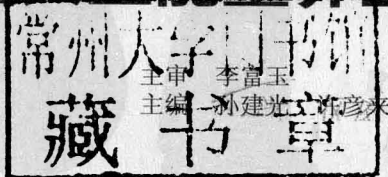 常州大学
主审 李富玉
主编 孙建光 许彦来
藏书章